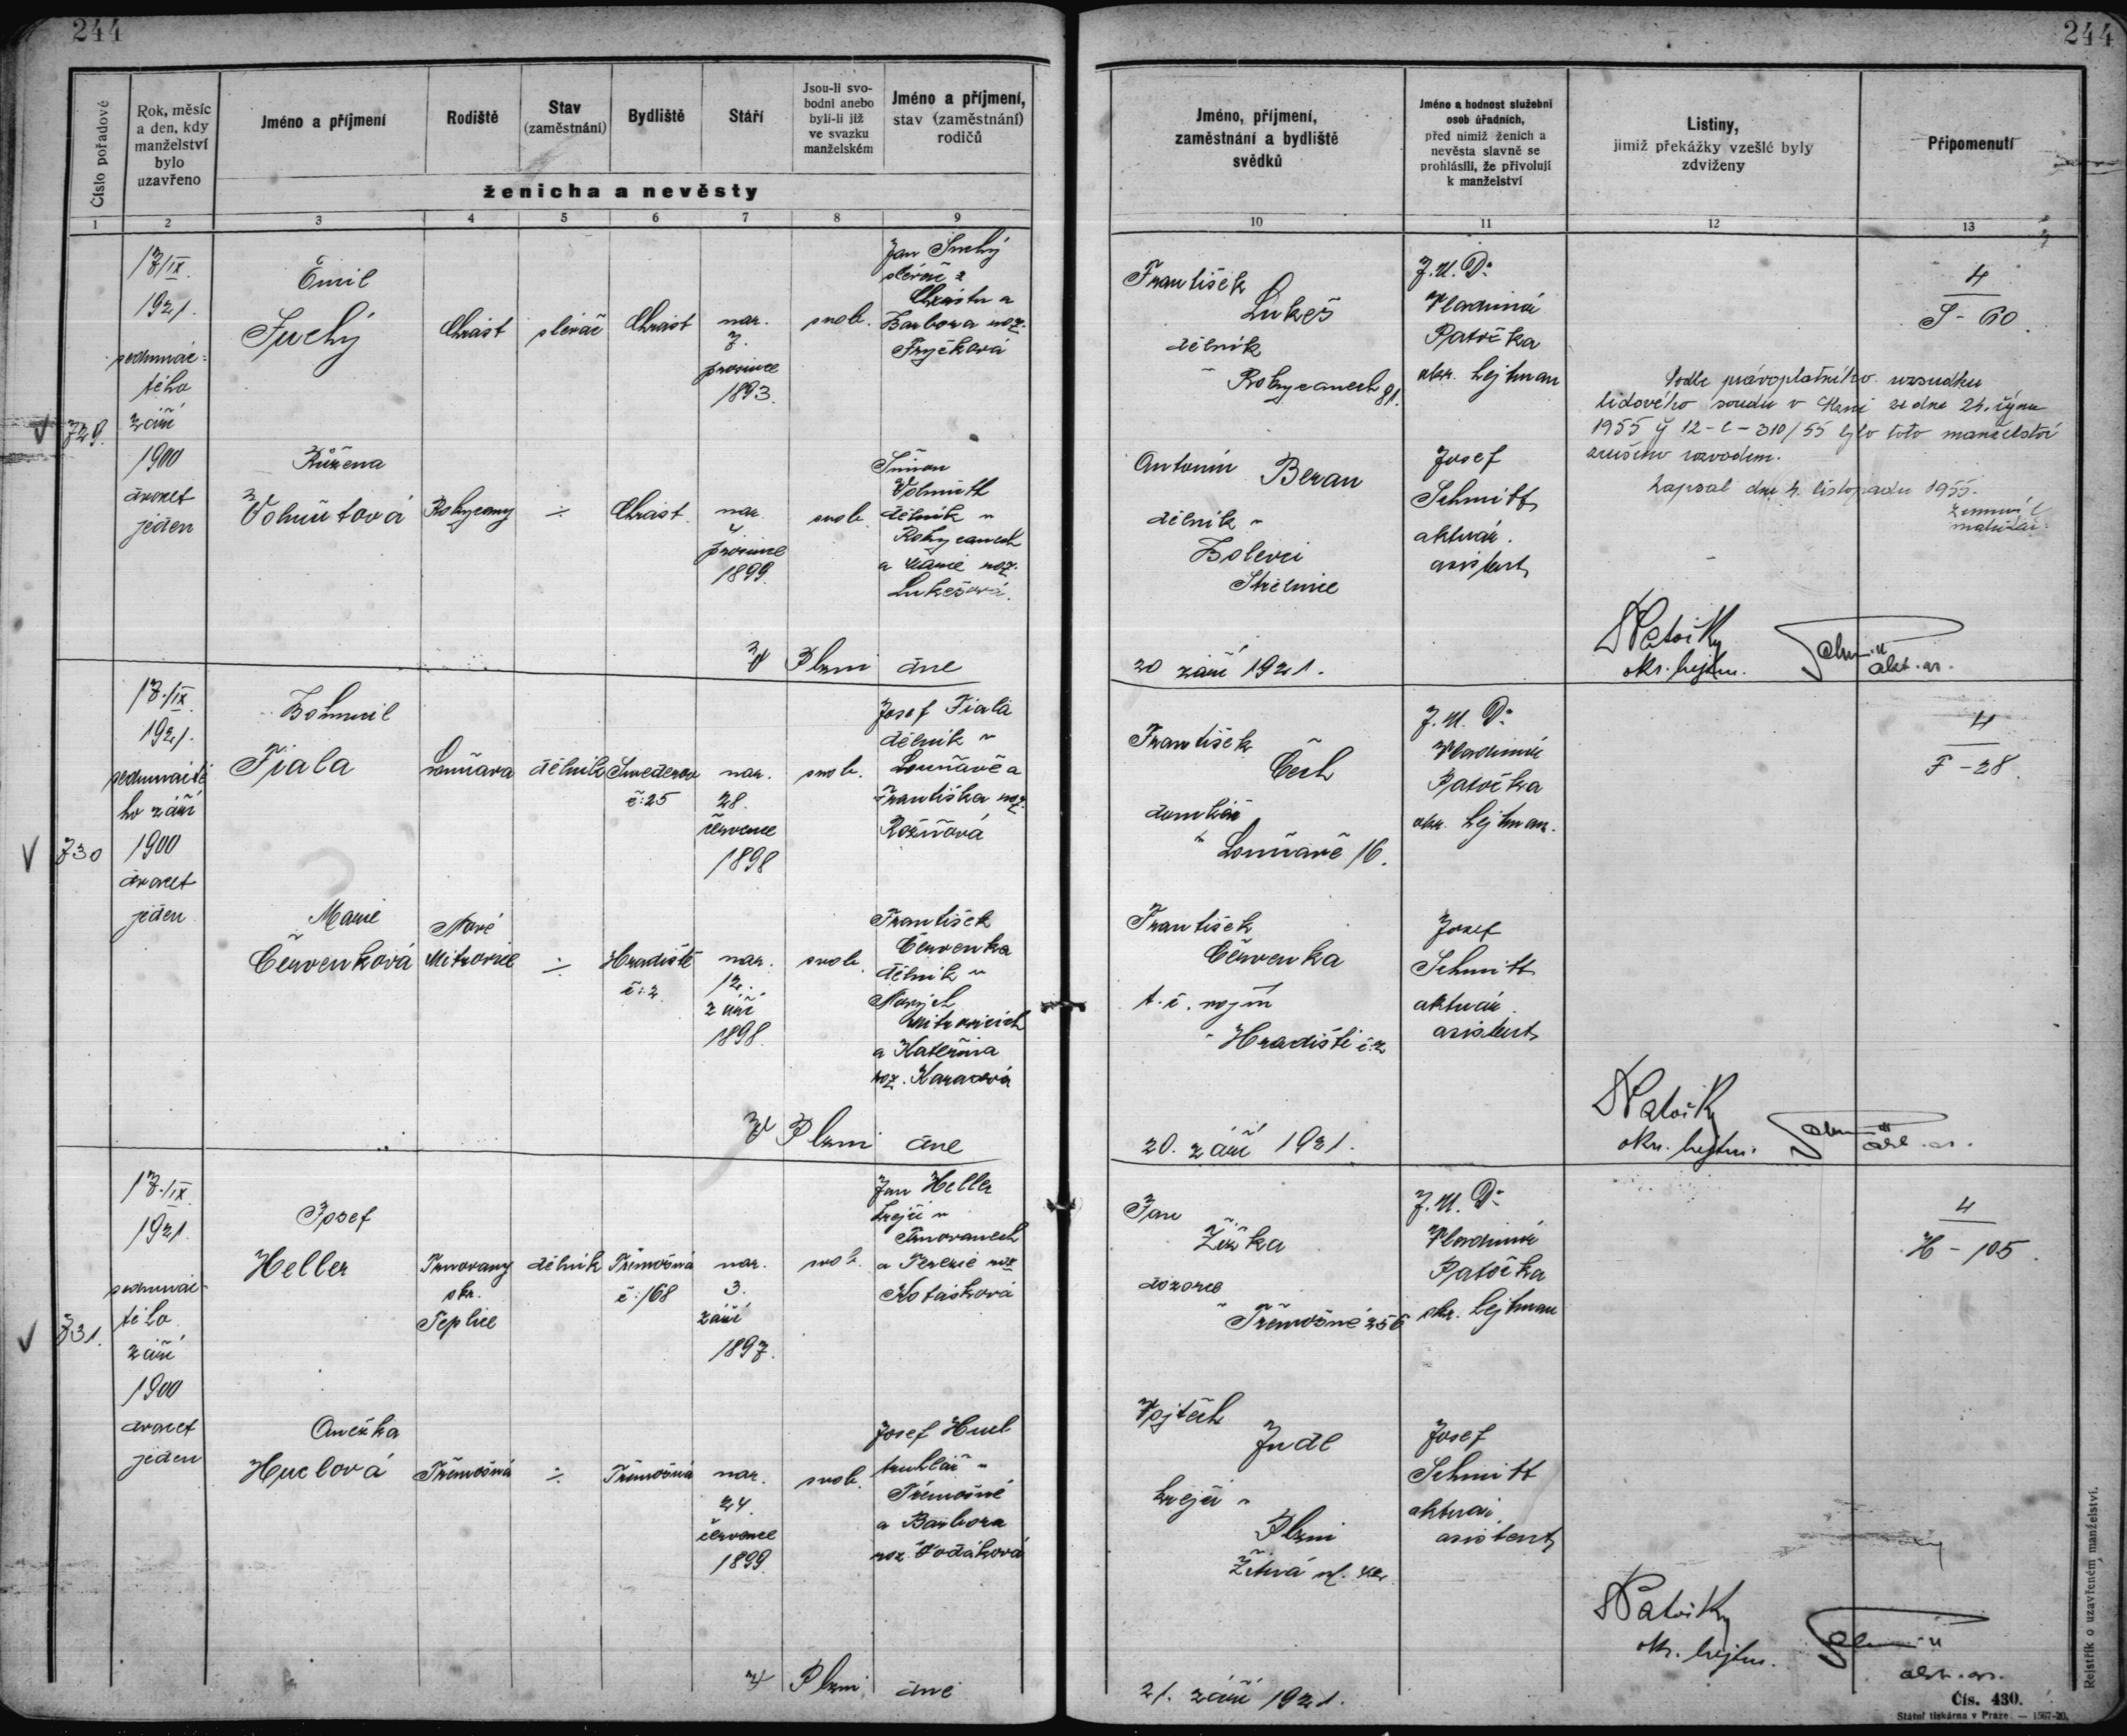 244
244
Číslo pořadové
Rok, měsíc
a den, kdy
manželství
bylo
uzavřeno
Jméno a příjmení
Rodiště
Stav
(zaměstnání)
Bydliště
Stáří
Jsou-li svo-
bodni anebo
byli-li již
ve svazku
manželském
Jméno a příjmení,
stav (zaměstnání)
rodičů
ženicha a nevěsty
1
2
3
4
5
6
7
8
9
Jméno, příjmení,
zaměstnání a bydliště
svědků
Jméno a hodnost služební
osob úřadních,
před nimiž ženich a
nevěsta slavně se
prohlásili, že přivolují
k manželství
Listiny,
jimiž překážky vzešlé byly
zdviženy
Připomenutí
10
11
12
13
729.
17/IX.
1921.
sedmnác-
tého
září
1900
dvacet
jeden
Emil
Suchý
Chrást
slévač
Chrást
nar.
7.
prosince
1893.
svob.
Jan Suchý
slévač z
Chrástu a
Barbora roz.
Fryčková
Růžena
Volmutová
Rokycany
÷
Chrást.
nar.
4
prosince
1899.
svob.
Šimon
Volmuth
dělník v
Rokycanech
a Marie roz.
Lukešová.
František
Lukeš
dělník
v Rokycanech 81.
J. U. Dr
Vladimír
Patočka
okr. hejtman
4
S - 60.
Podle právoplatného rozsudku
lidového soudu v Plzni ze dne 24. října
1955 čj 12-C-310/55 bylo toto manželství
zrušeno rozvodem.
Zapsal dne 4. listopadu 1955.
matrikář
Antonín Beran
dělník v
Bolevci
Střelnice
Josef
Schmitt
aktuár.
asistent
V Plzni dne
20 září 1921.
okr. hejtm.
akt. as.
730
17./IX.
1921.
sedmnácté
ho září
1900
dvacet
jeden
Bohumil
Fiala
dělník
č: 25
nar.
28.
července
1898
svob.
Josef Fiala
dělník v
František
Čech
domkář
16.
J. U. Dr
Vladimír
Patočka
okr. hejtman.
4
F - 28.
Marie
Červenková
Nové
Mitrovice
÷
Hradiště
č: 2
nar.
12.
září
1898.
svob.
František
Červenka
dělník v
Nových
Mitrovicích
a Kateřina
František
Červenka
t. č. vojín
v Hradišti č: 2
Josef
Schmitt
aktuár
asistent
V Plzni dne
20. září 1921.
okr. hejtm.
731.
17./IX.
1921.
sedmnác-
tého
září
1900
dvacet
jeden
Josef
Heller
Trnovany
okr.
Teplice
dělník
Třemošná
č: 168
nar.
3.
září
1897.
svob.
Jan Heller
krejčí v
Trnovanech
a Terezie roz
Kotásková
Jan
Žižka
dozorce
v Třemošné 256
J. U. Dr
Vladimír
Patočka
okr. hejtman
4
H - 105.
Anežka
Huclová
Třemošná
÷
Třemošná
nar.
24.
července
1899.
svob.
Josef Hucl
truhlář v
Třemošné
a Barbora
roz. Vodáková
Vojtěch
Judl
krejčí v
Plzni
Josef
Schmitt
aktuár.
asistent
V Plzni dne
21. září 1921.
okr. hejtm.
akt. as.
Rejstřík o uzavřeném manželství.
Čís. 430.
Státní tiskárna v Praze. — 1567-20.